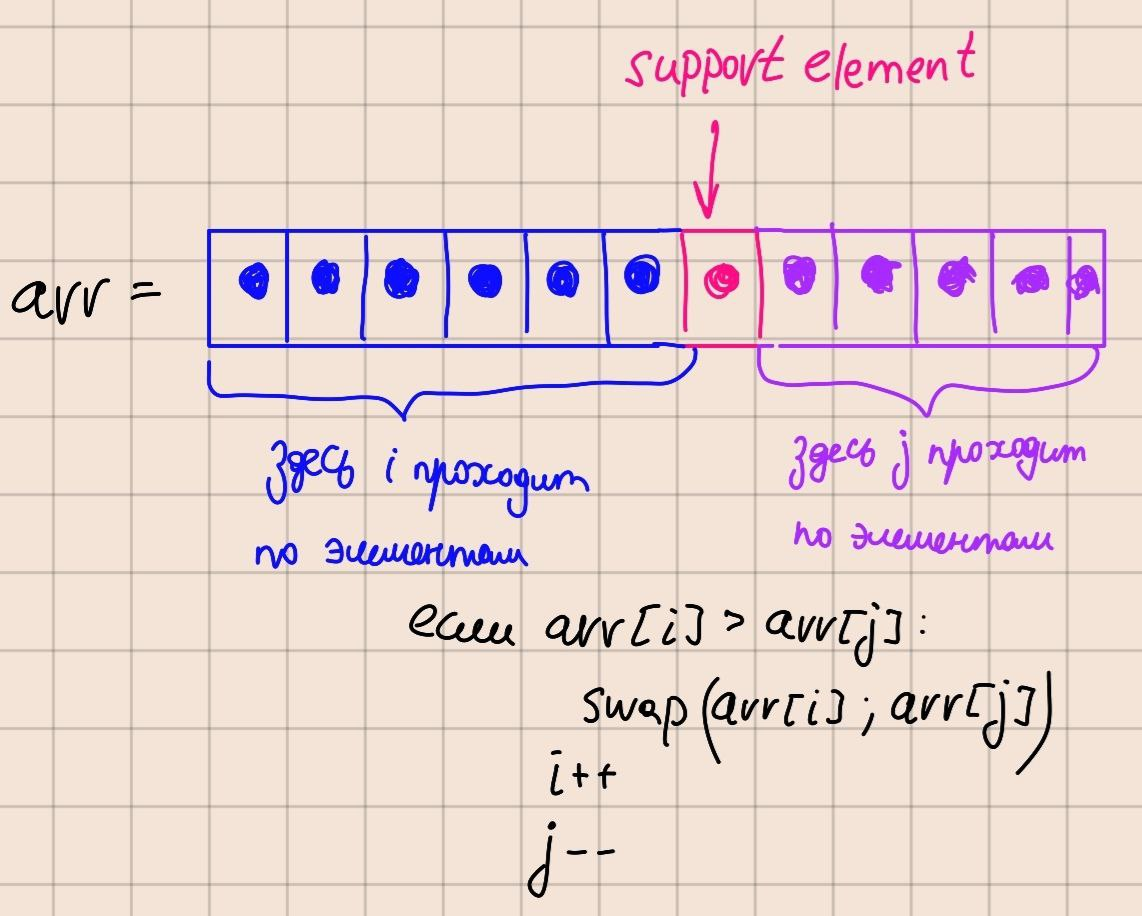 support element
arr =
здесь i проходит
по элементам
здесь j проходит
по элементам
если arr[i] > arr[j]:
swap(arr[i]; arr[j])
i++
j--